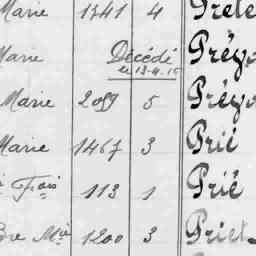 Marie 1341 4 Préte
Marie Décédé Prévo
le 13-4-15
Marie 2059 5 Prévo
Marie 1467 3 Prié
Fçois 113 1 Prié
Mie 1200 3 Priet